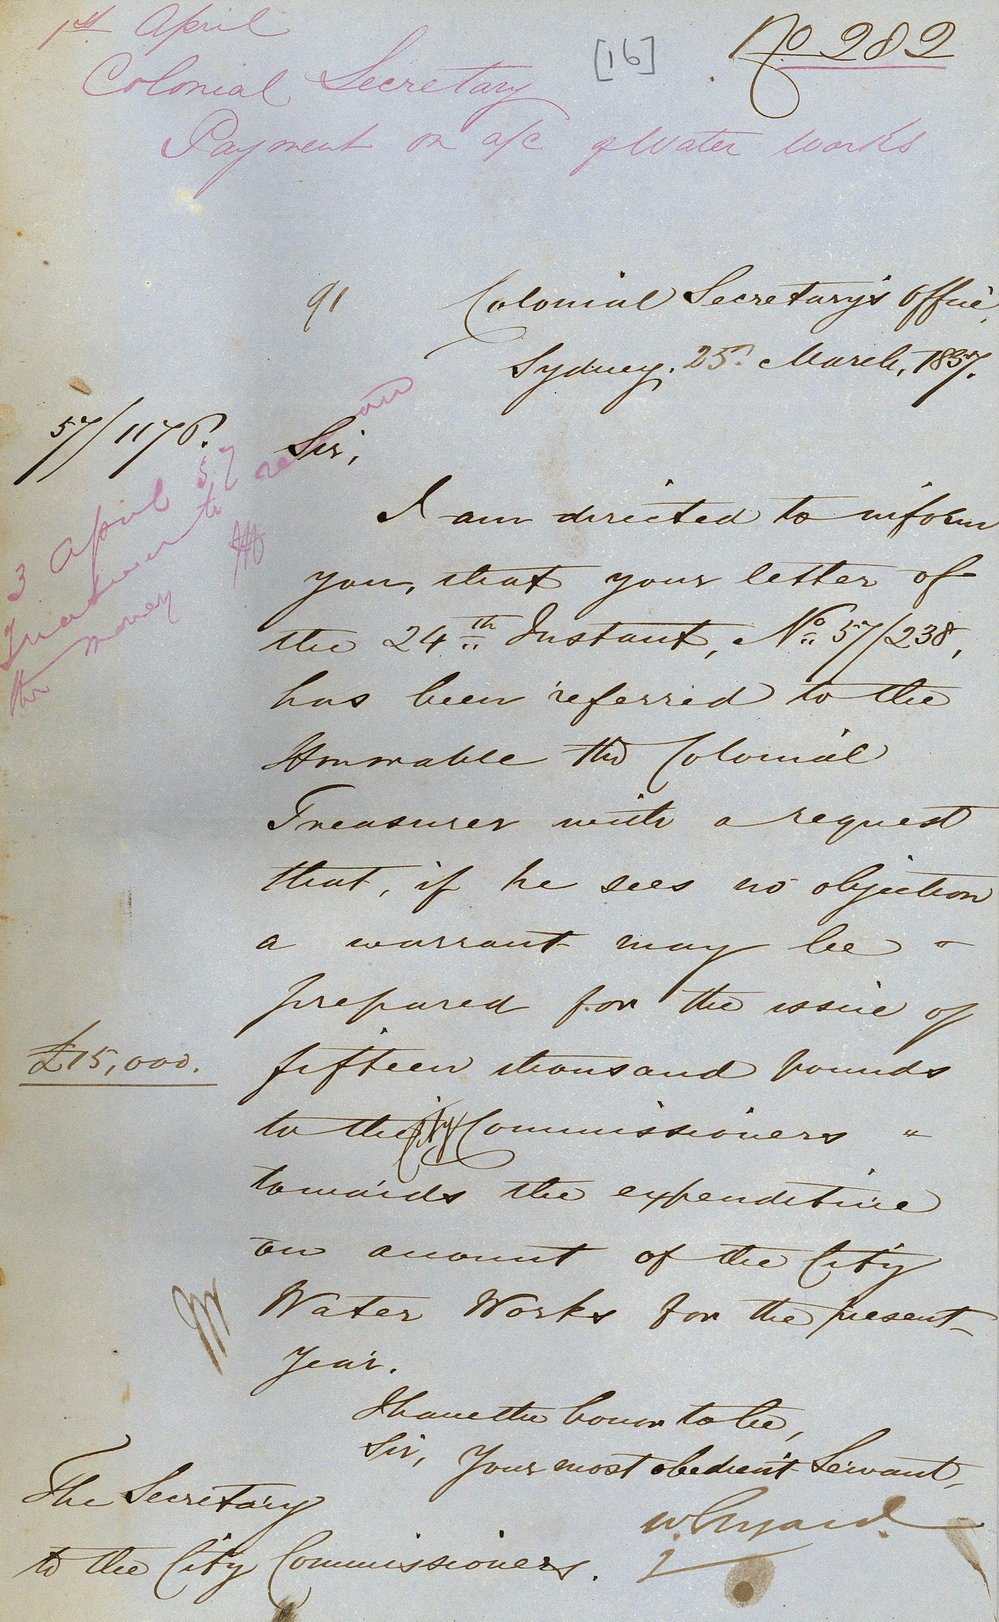 1st April
[16]
No 282
Colonial Secretary
Payment on a/c of Water Works
91
Colonial Secretary's Office,
Sydney, 25th March, 1857.
57/1176.
Sir,
3 April 57
Treasurer to
the money
I am directed to inform
you, that your letter of
the 24th Instant, No 57/238,
has been referred to the
Honorable the Colonial
Treasurer with a request
that, if he sees no objection
a warrant may be
prepared for the issue of
£15,000.
fifteen thousand pounds
to the City Commissioners "
towards the expenditure
on account of the City
Water Works for the present
year.
I have the honor to be,
Sir, Your most obedient Servant,
W. Elyard.
The Secretary
to the City Commissioners.